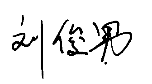 刘俊男